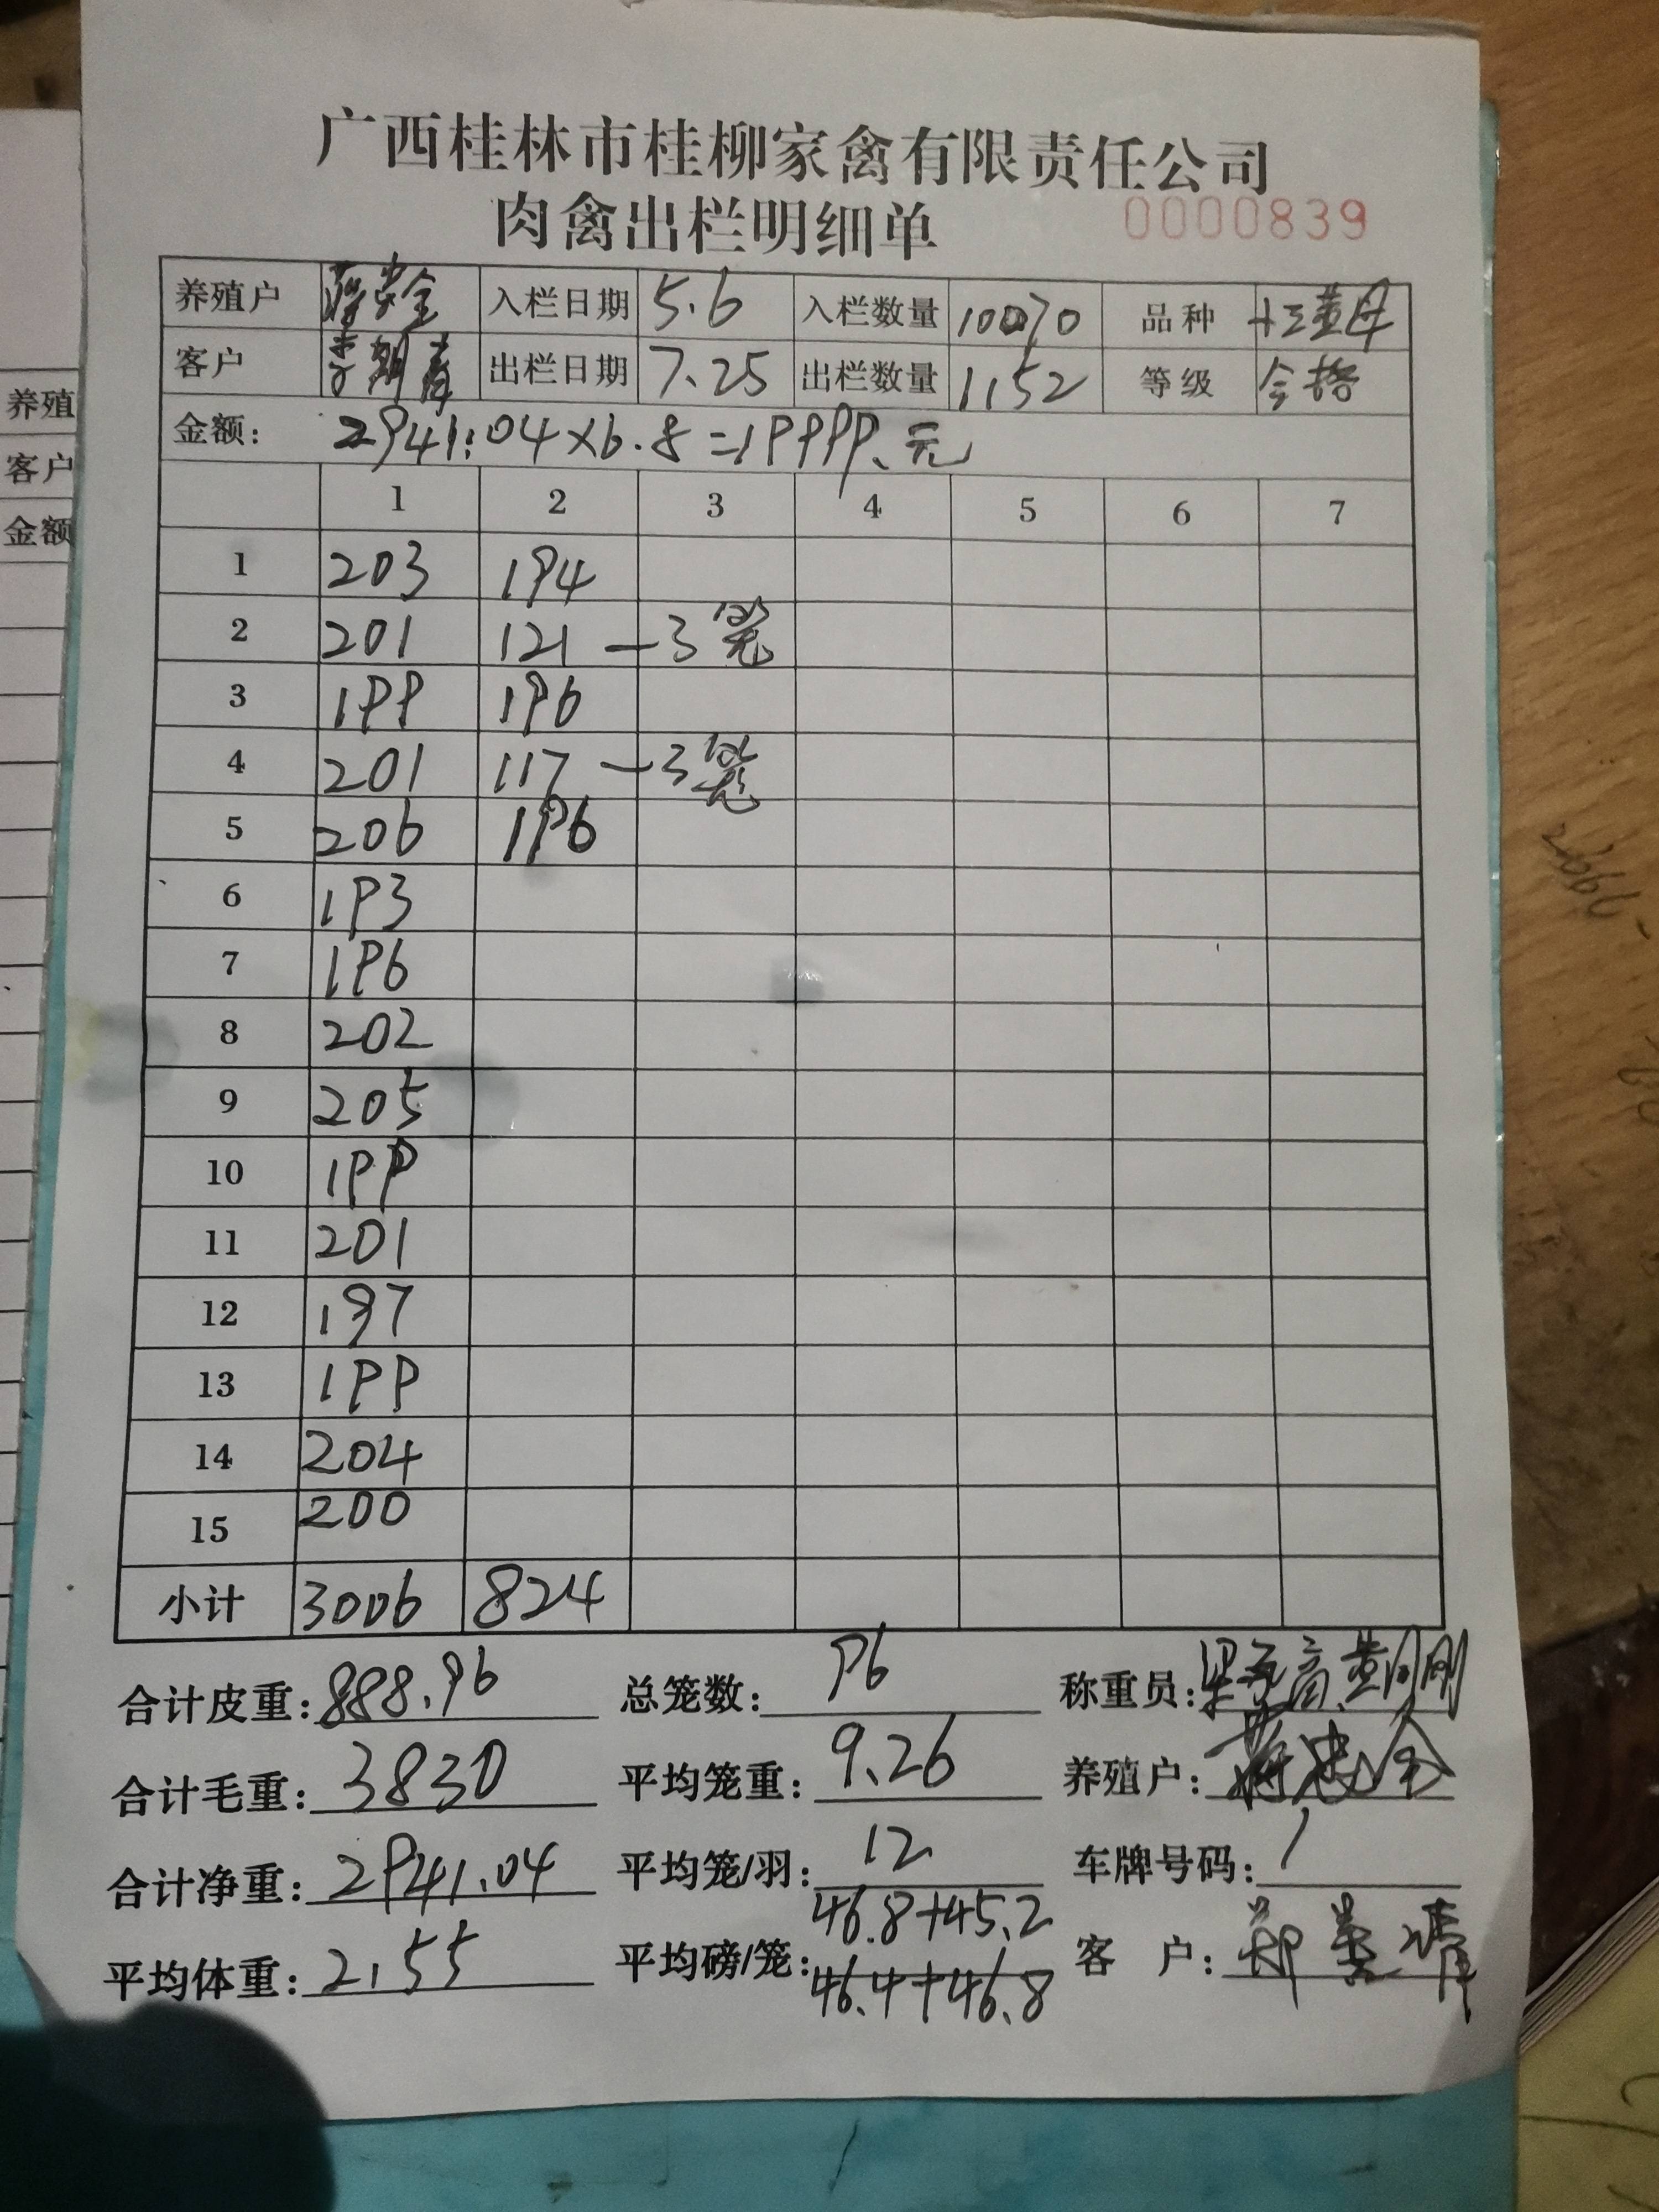 广西桂林市桂柳家禽有限责任公司
肉禽出栏明细单 0000839
养殖户 蒋忠全 入栏日期 5.6 入栏数量 10070 品种 母
客户 李朝 出栏日期 7.25 出栏数量 1152 等级 合格
金额: 2941.04×6.8=19999.元
1 2 3 4 5 6 7
1 203 194
2 201 121 —3笼
3 199 196
4 201 117 —3笼
5 206 196
6 193
7 196
8 202
9 205
10 199
11 201
12 197
13 199
14 204
15 200
小计 3006 824
合计皮重: 888.96 总笼数: 96 称重员:
合计毛重: 3830 平均笼重: 9.26 养殖户: 蒋忠全
合计净重: 2941.04 平均笼/羽: 12 车牌号码: /
46.8+45.2
平均体重: 2.55 平均磅/笼: 客 户: 郑
46.4+46.8
养殖
客户
金额